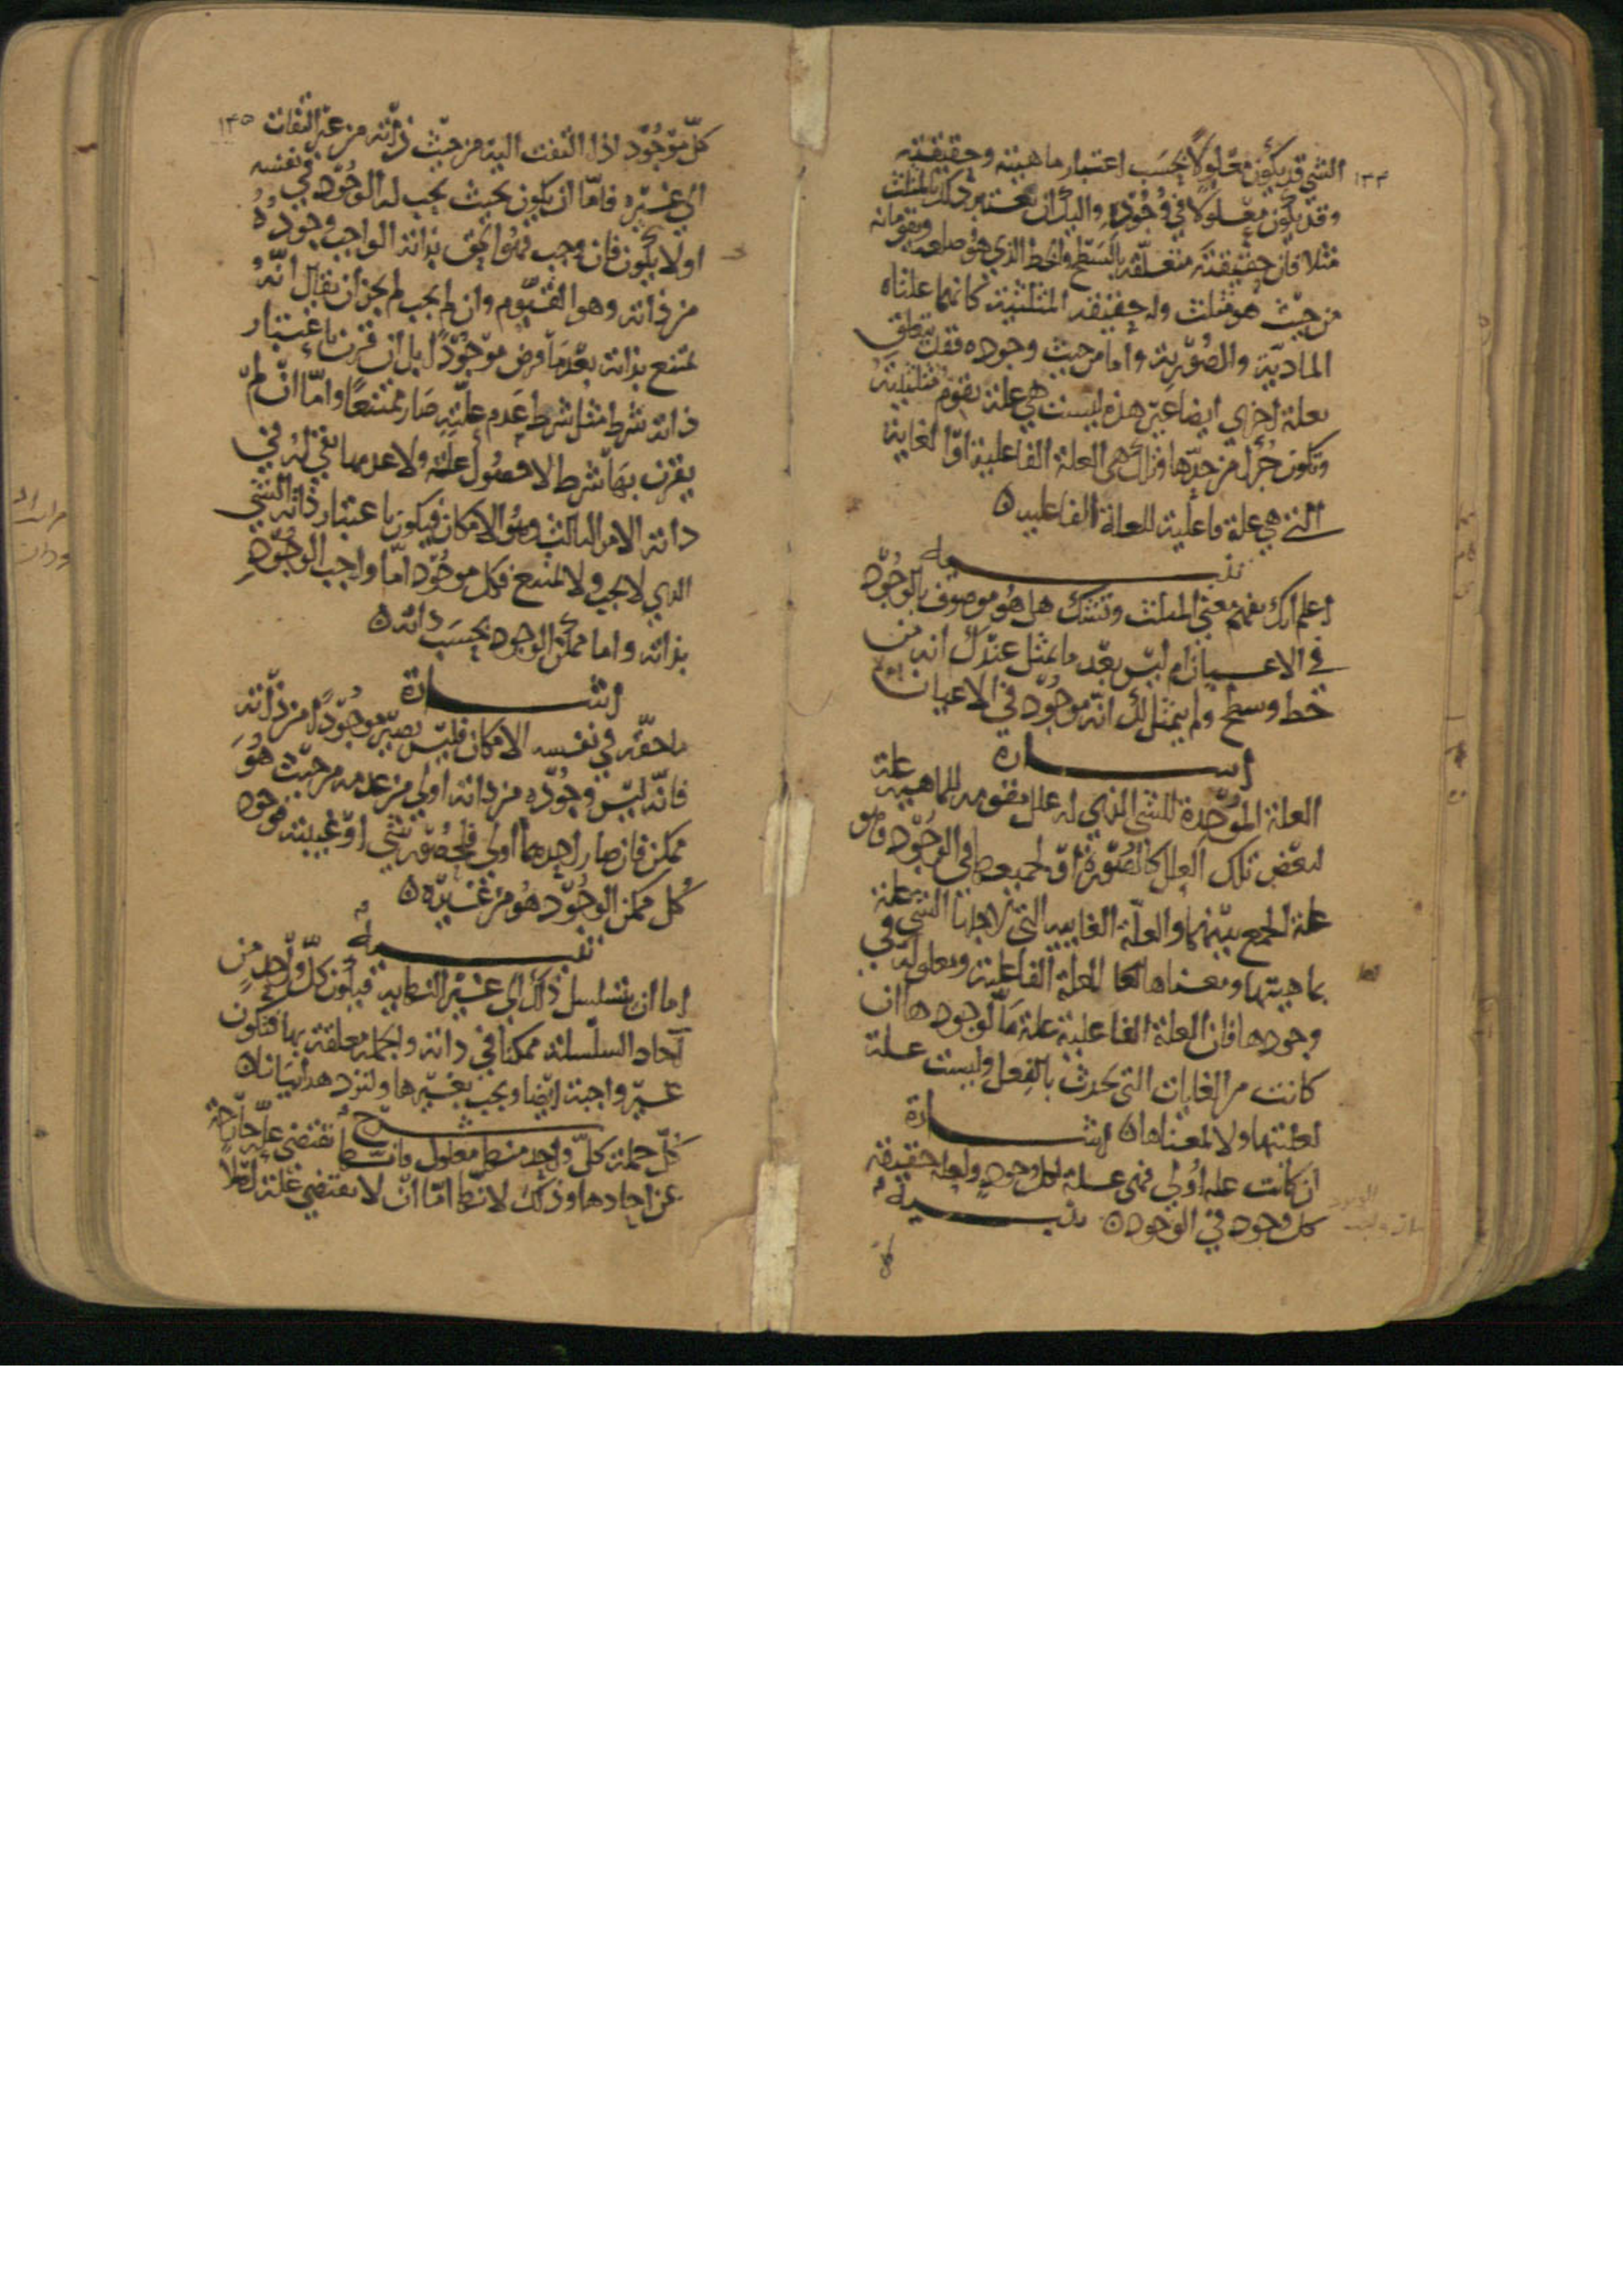 ١٣٤
الشي قد يكون معلولا بحسب اعتبار ماهيته وحقيقته
وقد يكون معلولا في وجوده واليك ان تعتبر ذلك بالمثلث
مثلا فان حقيقته متعلقة بالسطح والخط الذي هو ضلعه ويقومانه
من حيث هو مثلث وله حقيقة المثلثية كانهما علتاه
المادية والصورية واما من حيث وجوده فقد يتعلق
بعلة اخرى ايضا غير هذه ليست هي علة تقوم مثلثيته
وتكون جزا من حدها وتلك هي العلة الفاعلية او الغاية
التي هي علة فاعلية للعلة الفاعلية ٥
تنبيه
اعلم انك تفهم معنى المثلث وتشك هل هو موصوف بالوجود
في الاعيان ام ليس بعد ما تمثل عندك انه من
خط وسطح ولم يتمثل لك انه موجود في الاعيان
اشارة
العلة الموجدة للشي الذي له علل مقومه للماهية علة
لبعض تلك العلل كالصورة او لجميعها في الوجود وهو
علة الجمع بينهما والعلة الغاييه التي لاجلها الشي علة
بماهيتها ومعناها لعلية العلة الفاعلية ومعلولة في
وجودها فان العلة الفاعلية علة ما لوجودها ان
كانت من الغايات التي تحدث بالفعل وليست علة
لعليتها ولا لمعناها ٥ اشارة
ان كانت علة اولى فهي علة لكل وجود ولعلة حقيقة
كل وجود في الوجود ٥ تنبيه
كل
١٣٥
كل موجود اذا التفت اليه من حيث ذاته من غير التفات
الى غيره فاما ان يكون بحيث يجب له الوجود في نفسه
اولا يكون فان وجب فهو الحق بذاته الواجب وجوده
من ذاته وهو القيوم وان لم يجب لم يجز ان يقال انه
ممتنع بذاته بعد ما فرض موجودا بل ان قرن باعتبار
ذاته شرط مثل شرط عدم علته صار ممتنعا واما ان لم
يقرن بها شرط لا حصول علة ولا عدمها بقي له في
ذاته الامر الثالث وهو الامكان فيكون باعتبار ذاته الشي
الذي لا يجب ولا يمتنع فكل موجود اما واجب الوجود
بذاته واما ممكن الوجود بحسب ذاته ٥
اشارة
ما حقه في نفسه الامكان فليس يصير موجودا من ذاته
فانه ليس وجوده من ذاته اولى من عدمه من حيث هو
ممكن فان صار احدهما اولى فلحضور شي او غيبته فوجود
كل ممكن الوجود هو من غيره ٥
تنبيه
اما ان يتسلسل ذلك الى غير النهاية فيكون كل واحد من
آحاد السلسلة ممكنا في ذاته والجملة معلقة بها فتكون
غير واجبة ايضا وتجب بغيرها ولنزد هذا بيانا ٥
شرح
كل جملة كل واحد منها معلول فانها تقتضي علة خارجة
عن احادها وذلك لانها اما ان لا تقتضي علة اصلا